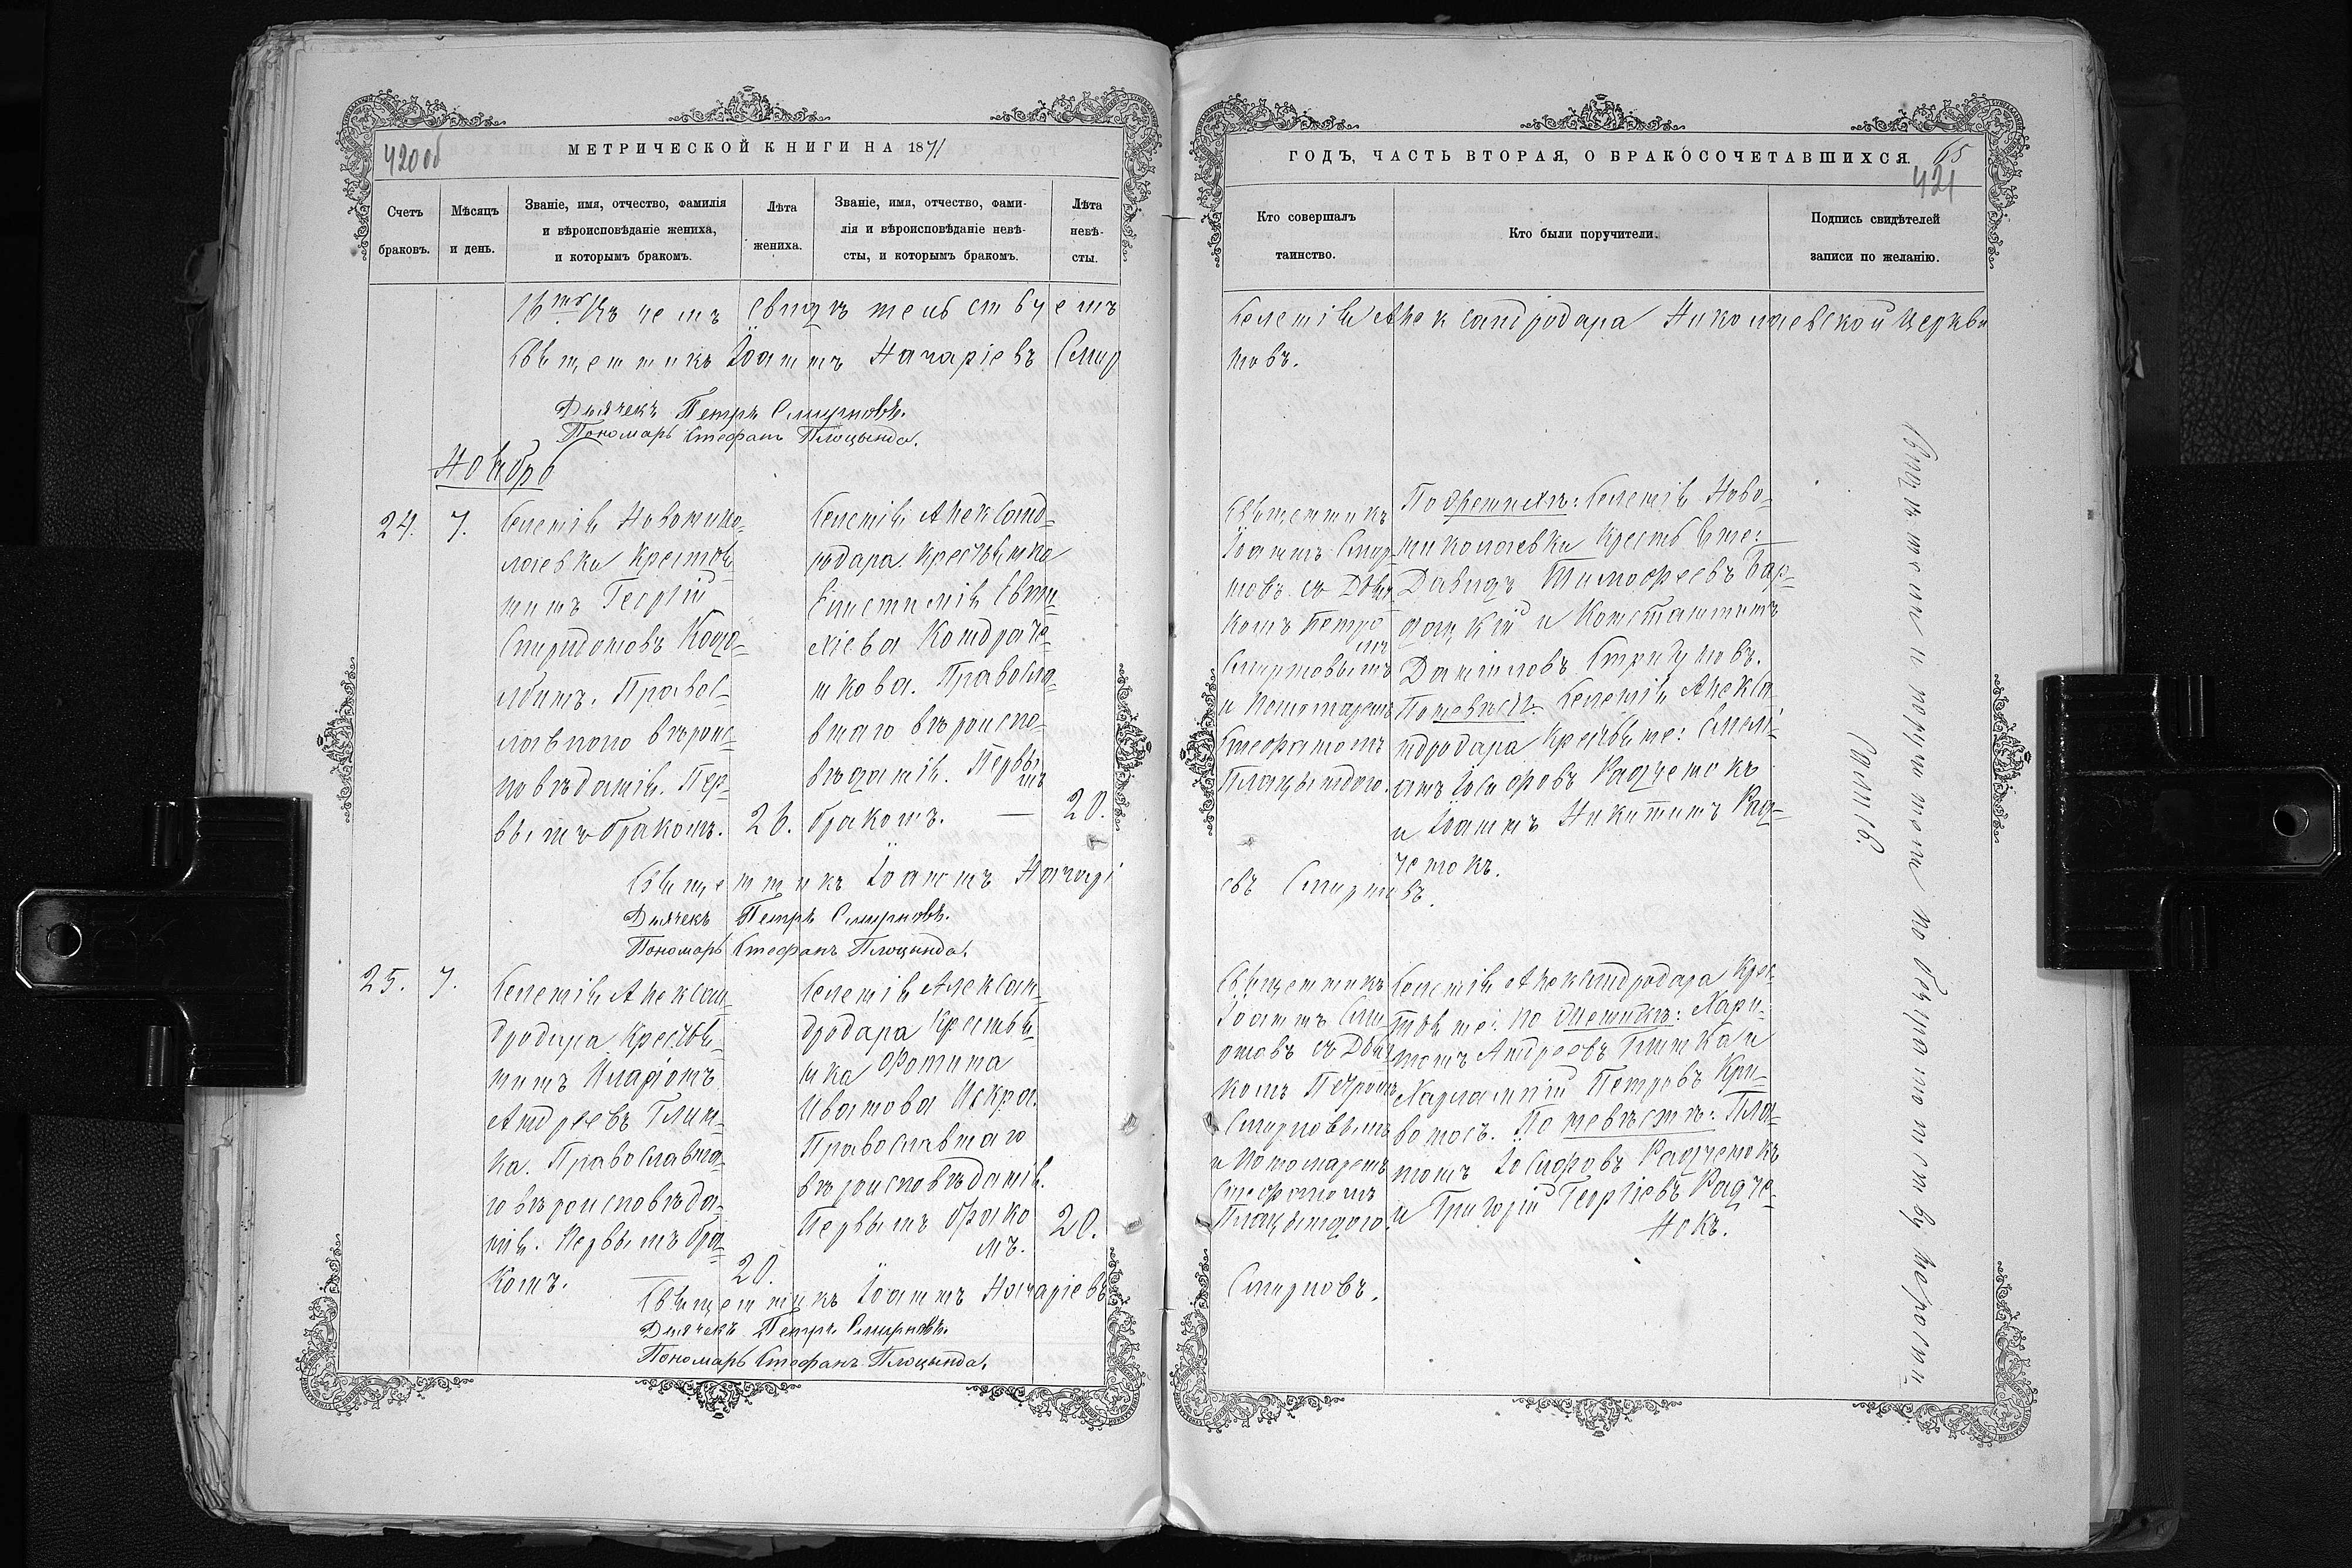 420 об
МЕТРИЧЕСКОЙ КНИГИ НА 1871
Счетъ браковъ.
Мѣсяцъ и день.
Званіе, имя, отчество, фамилія
и вѣроисповѣданіе жениха,
и которымъ бракомъ.
Лѣта жениха.
Званіе, имя, отчество, фами-
лія и вѣроисповѣданіе невѣ-
сты, и которымъ бракомъ.
Лѣта невѣ-
сты.
Священникъ Іоаннъ Назаріевъ Смир
Дьячекъ Петръ Смирновъ.
Пономарь Стефанъ Плоцында.
Ноябрь
24. 7.
Селенія Новонико-
лаевки крестья-
нинъ Георгій
Спиридоновъ
Правос-
лавнаго вѣроис-
повѣданія. Пер-
вымъ бракомъ.
26.
Селенія Александ-
родара крестьянка
Епистимія Евти-
хіева Кондраче-
нкова. Правосла-
внаго вѣроиспо-
вѣданія. Первы
мъ
бракомъ. —
20.
Священникъ Іоаннъ Назарі
Дьячекъ Петръ Смирновъ.
Пономарь Стефанъ Плоцында.
25. 7.
Селенія Алексан-
дродара крестья-
нинъ Иларіонъ
Андреевъ Глин-
ка. Православна-
го вѣроисповѣда-
нія. Первымъ бра-
комъ.
20.
Селенія Алексан-
дродара крестья-
нка Фотина
Иванова Искра.
Православнаго
вѣроисповѣданія.
Первымъ брако
мъ.
20.
Священникъ Іоаннъ Назаріевъ
Дьячекъ Петръ Смирновъ.
Пономарь Стефанъ Плоцында.
ГОДЪ, ЧАСТЬ ВТОРАЯ, О БРАКОСОЧЕТАВШИХСЯ.
65
421
Кто совершалъ
таинство.
Кто были поручители.
Подпись свидѣтелей
записи по желанію.
Селенія Александродара Николаевской церкви
новъ.
Священникъ
Іоаннъ Смир-
новъ съ Дьяч-
комъ Петро
мъ
Смирновымъ
и Пономаремъ
Стефаномъ
Плацындою.
По женихѣ: Селенія Ново-
николаевки крестьяне:
Давидъ Тимофеевъ
и Константинъ
Даніиловъ Стригуновъ.
По невѣстѣ: Селенія Алекса-
ндродара крестьяне:
Іосифовъ Радченокъ
и Іоаннъ Никитинъ Рад-
ченокъ.
евъ Смирновъ.
Священникъ
Іоаннъ Сми-
рновъ съ Дьяч-
комъ Петромъ
Смирновымъ
и Пономаремъ
Стефаномъ
Плацындою.
Селенія Александродара крес-
тьяне: по женихѣ: Хари-
тонъ Андреевъ Глинка и
Харлампій Петровъ Кри-
воносъ. По невѣстѣ: Пла-
тонъ Іосифовъ Радченокъ
и Григорій Георгіевъ Радче-
нокъ.
Смирновъ.
Свидѣтели и поручители по безграмотству неросп-
сались.